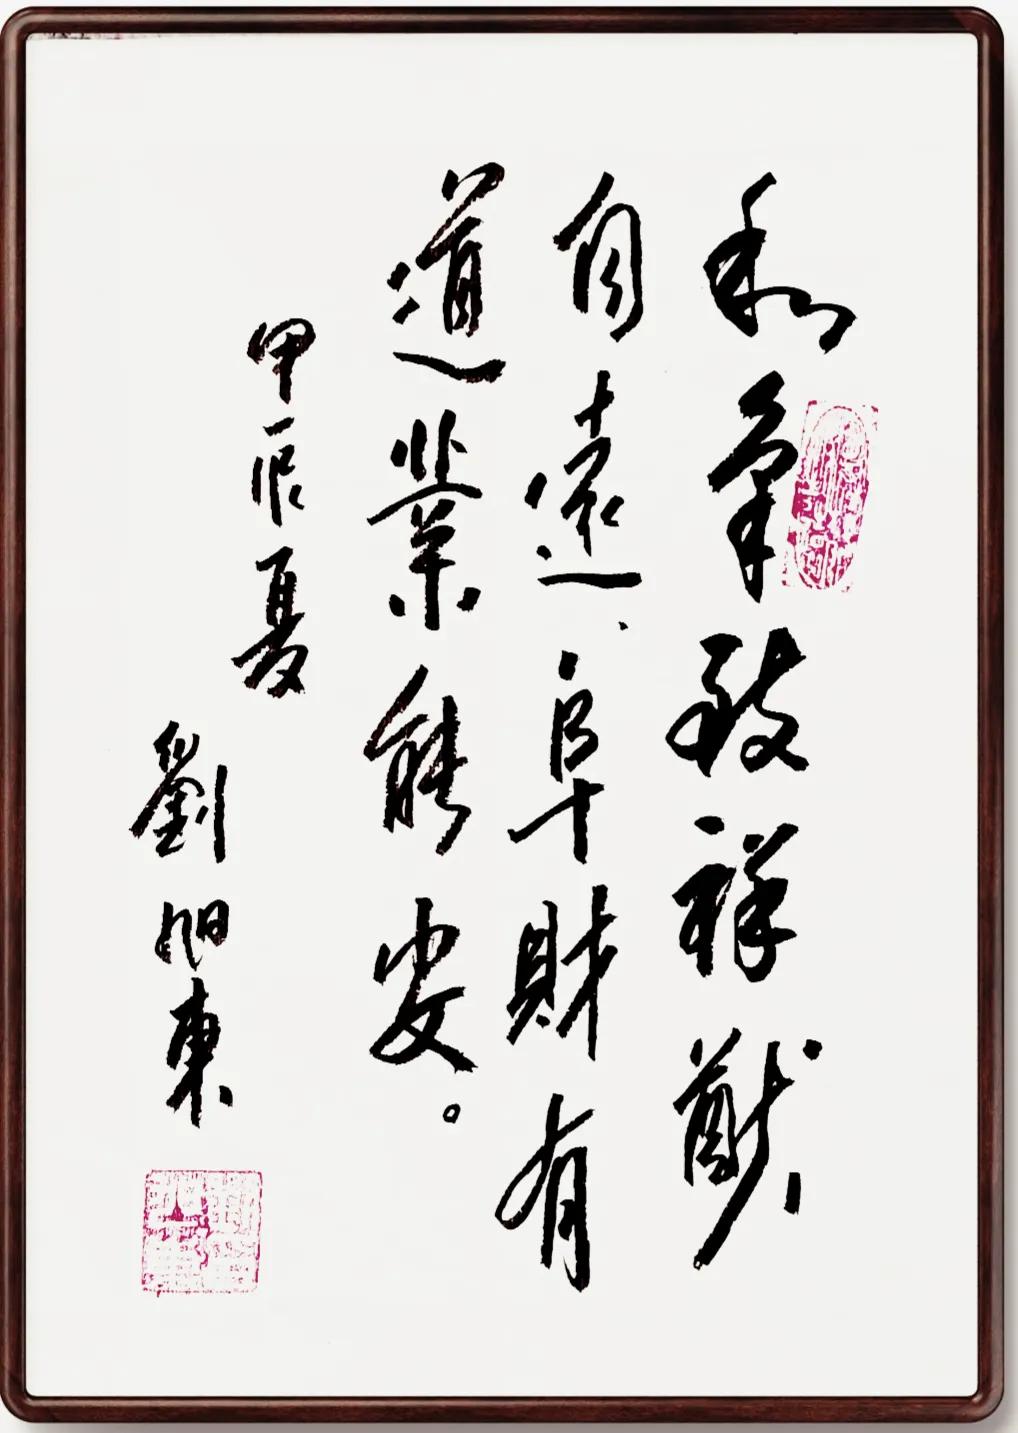 和氣致祥猷
自遠、阜財有
道業能安。
甲辰夏
劉旭東